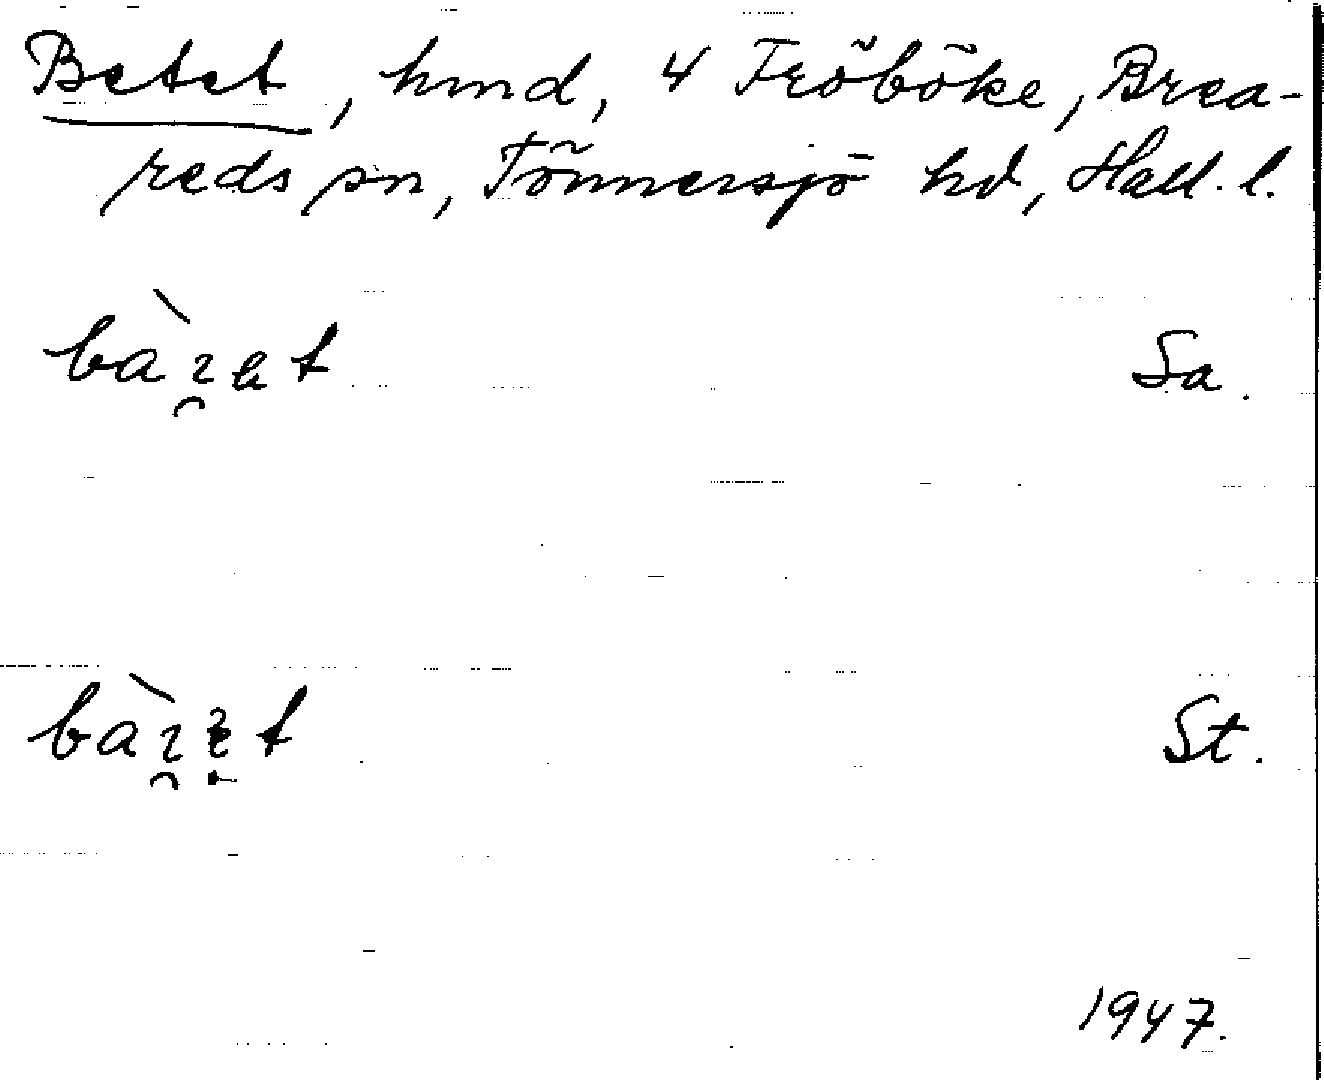 Betet, hmd, 4 Fröböke, Brea-
reds sn, Tönnersjö hd, Hall. l.
Sa.
St.
1947.